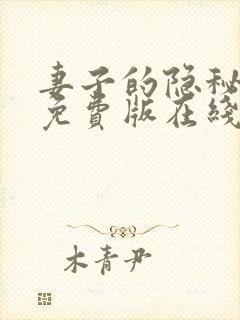 妻子的隐秘
免費版在綫
木青尹